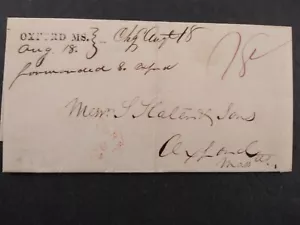 OXFORD MS. } Chg Augt 18
Aug 18. }
forwarded to Oxford
18
Messrs S Slater & Sons
Oxford
Mass